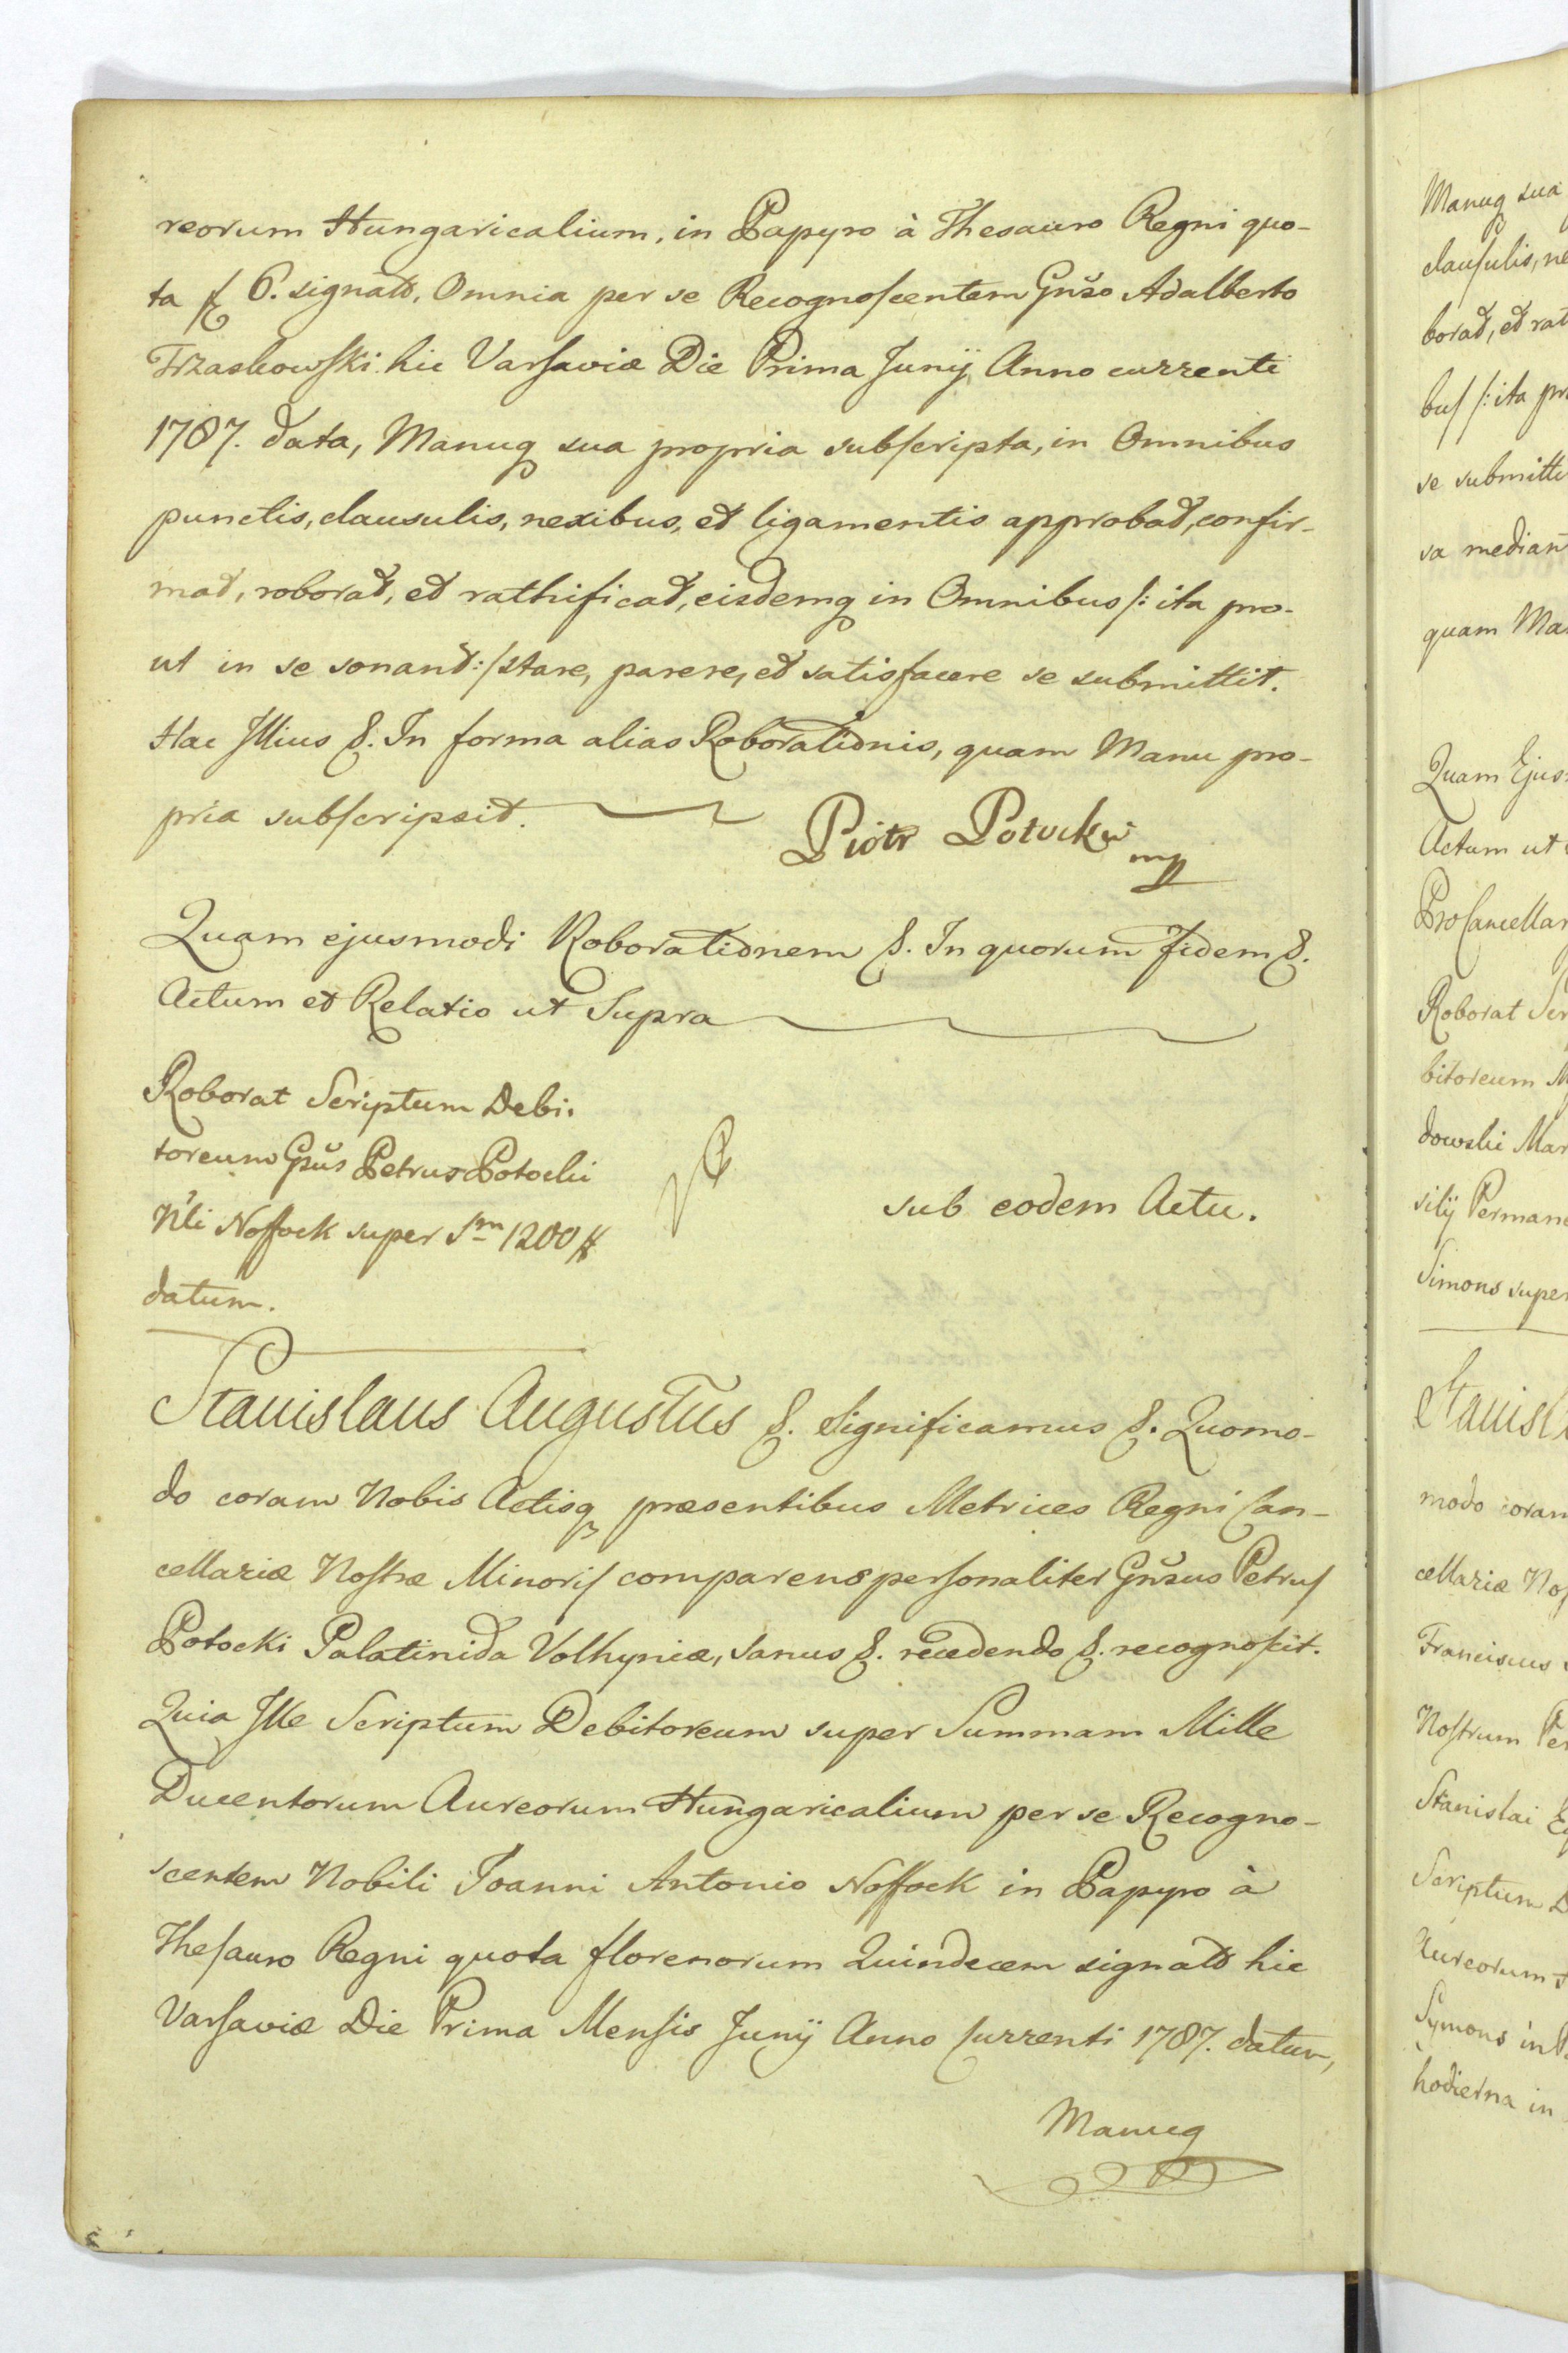 reorum Hungaricalium, in Papyro à Thesauro Regni quo-
ta f 6. signato, Omnia per se Recognoscentem Gnso Adalberto
Trzaskowski hic Varsaviæ Die Prima Junij Anno currenti
1787. data, Manuq sua propria subscripta, in Omnibus
punctis, clausulis, nexibus, et ligamentis approbat, confir-
mat, roborat, et rathificat, eisdemq in Omnibus /: ita pro-
ut in se sonant :/ stare, parere, et satisfacere se submittit.
Hac Illius &. In forma alias Roborationis, quam Manu pro-
pria subscripsit.
Piotr Potocki mp
Quam ejusmodi Roborationem &. In quorum Fidem &.
Actum et Relatio ut Supra
Roborat Scriptum Debi-
toreum Gsus Petrus Potocki
Nli Noffock super Sm 1200 #
datum.
sub eodem Actu.
Stanislaus Augustus &. Significamus &. Quomo-
do coram Nobis Actisq præsentibus Metrices Regni Can-
cellariæ Nostræ Minoris comparens personaliter Gnsus Petrus
Potocki Palatinida Volhyniæ, sanus &. recedendo &. recognoscit.
Quia Ille Scriptum Debitoreum super Summam Mille
Ducentorum Aureorum Hungaricalium per se Recogno-
scentem Nobili Joanni Antonio Noffock in Papyro à
Thesauro Regni quota florenorum Quindecem signato hic
Varsaviæ Die Prima Mensis Junij Anno Currenti 1787. datum,
Manuq
Manuq sua
clausulis, ne
borat, et rat
bus /: ita pro
se submitti
sa median
quam Ma
Quam Ejus
Actum ut
ProCancellar
Roborat Scr
bitoreum M
dowski Mar
silij Permane
Simons super
Stanisl
modo coram
cellariæ Nos
Franciscus
Nostrum Per
Stanislai
Scriptum D
Aureorum
Symons in
hodierna in